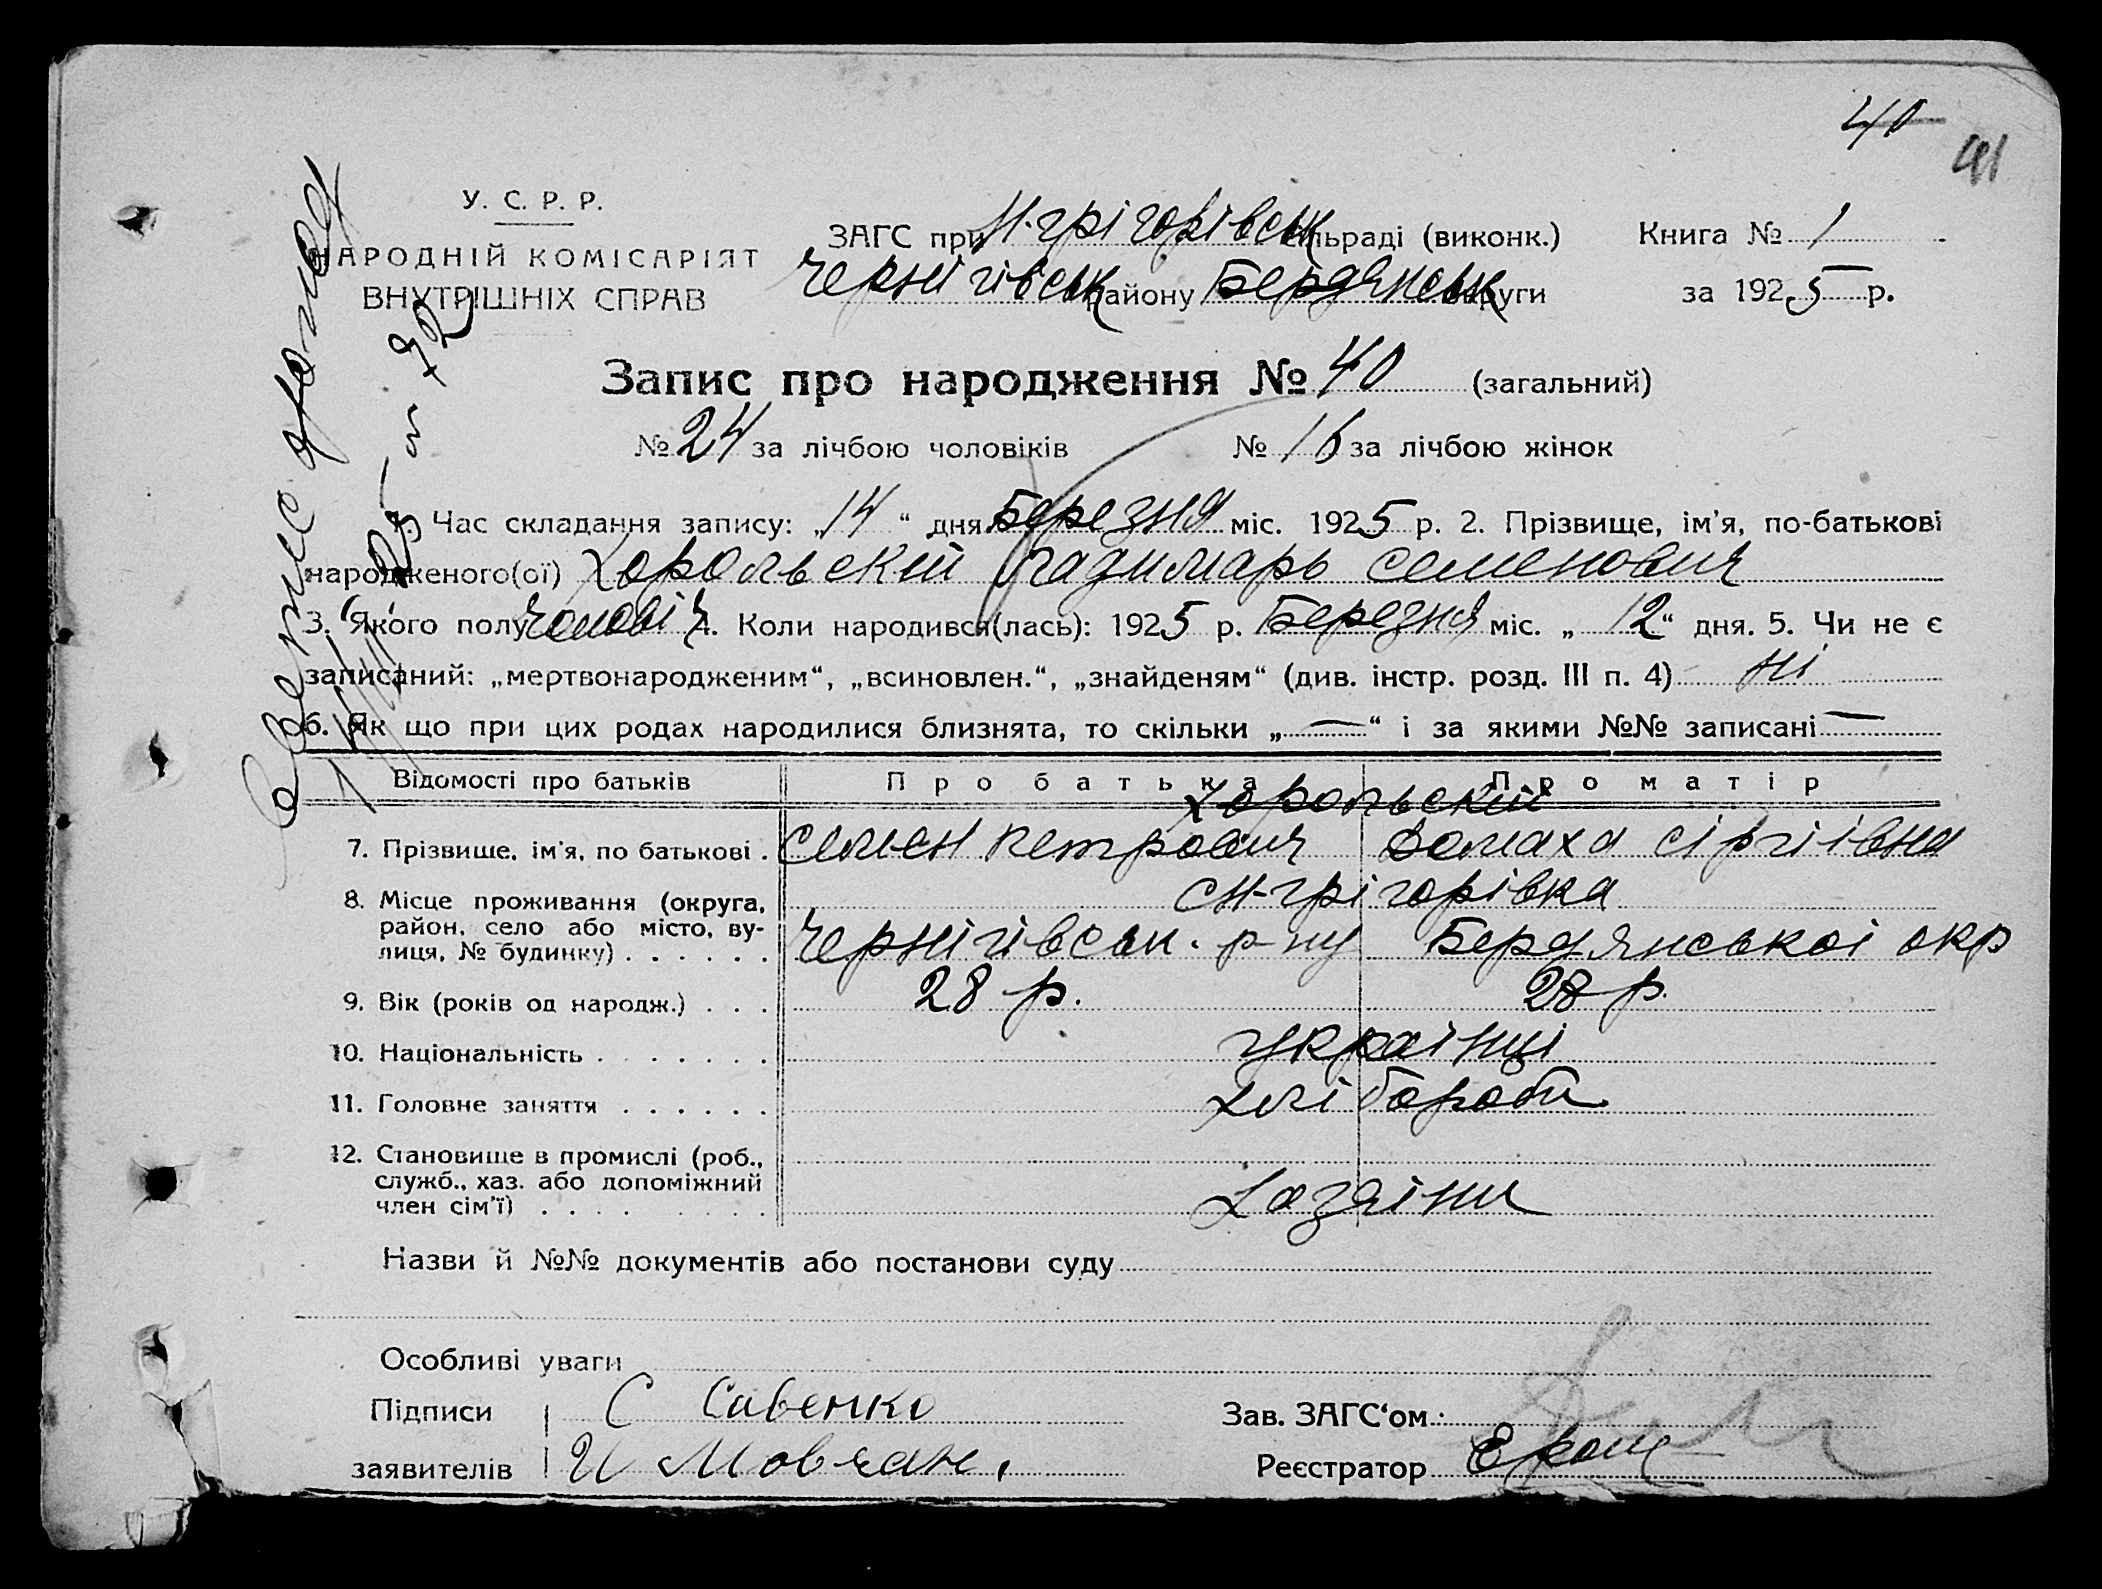 40
41
У. С. Р. Р.
НАРОДНІЙ КОМІСАРІЯТ
ВНУТРІШНІХ СПРАВ
ЗАГС при Н-Грігорівськ сільраді (виконк.)
Чернігівськ району Бердянськ округи
Книга № 1
за 1925 р.
Запис про народження № 40 (загальний)
№ 24 за лічбою чоловіків № 16 за лічбою жінок
Час складання запису: „14“ дня Березня міс. 1925 р. 2. Прізвище, ім'я, по-батькові
народженого(ої) Хорольский Семенович
3. Якого полу чоловіч 4. Коли народився(лась): 1925 р. Березня міс. „12“ дня. 5. Чи не є
записаний: „мертвонародженим“, „всиновлен.“, „знайденям“ (див. інстр. розд. III п. 4) ні
6. Як що при цих родах народилися близнята, то скільки „—“ і за якими №№ записані —
Відомості про батьків Про батька Про матір
Хорольский
7. Прізвище, ім'я, по батькові . Семен Петрович Домаха Сіргіівна
8. Місце проживання (округа, район, село або місто, вулиця, № будинку) . . . . . .
с Н-Грігорівка
Чернігівськ. р-ну Бердянськоі окр
9. Вік (років од народж.) . . . 28 р. 28 р.
10. Національність . . . . . . . українці
11. Головне заняття . . . . . . хлібороби
12. Становище в промислі (роб., служб., хаз. або допоміжний член сім'ї) . . . . . . . .
хазяіни
Назви й №№ документів або постанови суду
Особливі уваги
Підписи С Савенко
заявителів И Мовчан.
Зав. ЗАГС‘ом
Реєстратор